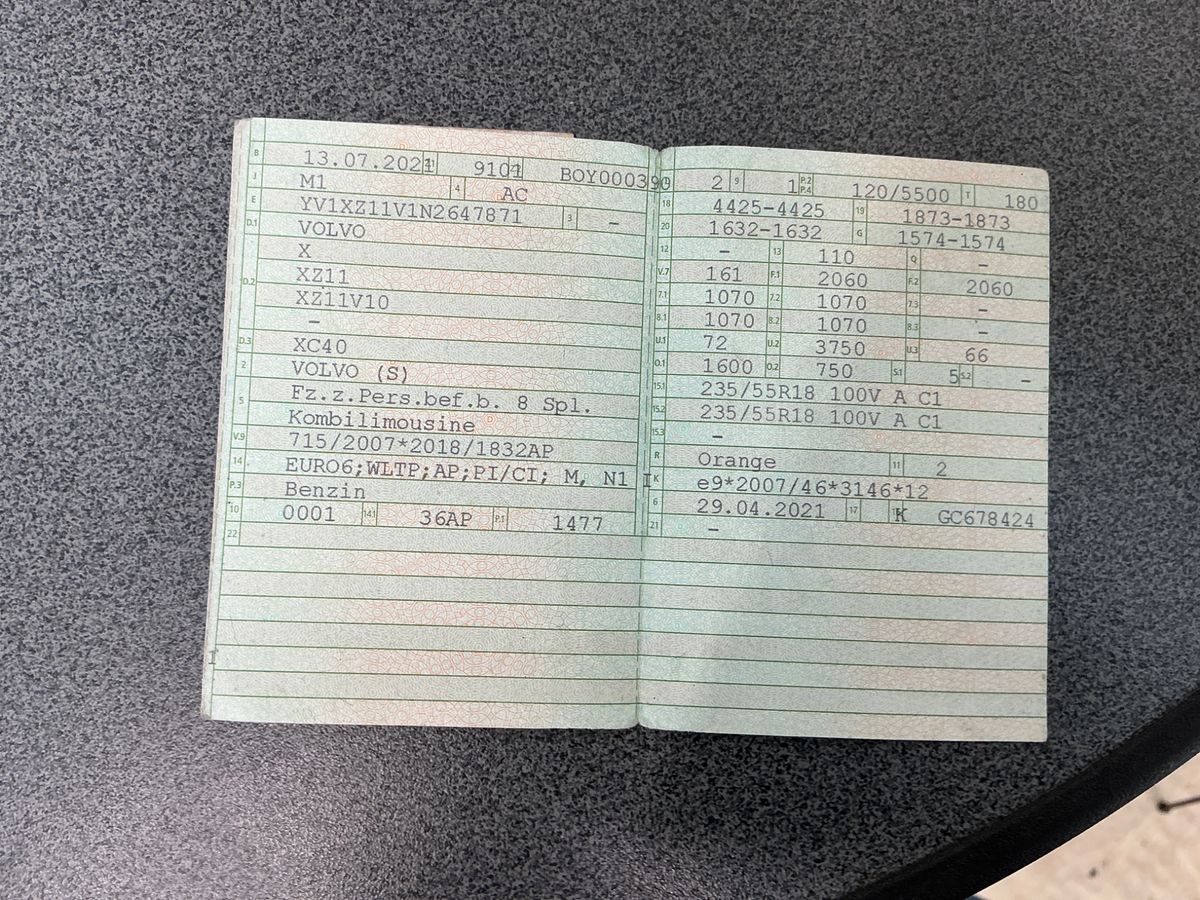 B 13.07.2021 2.1 9101 BOY000390
J M1 4 AC
E YV1XZ11V1N2647871 3 –
D.1 VOLVO
X
D.2 XZ11
XZ11V10
–
D.3 XC40
2 VOLVO (S)
5 Fz.z.Pers.bef.b. 8 Spl.
Kombilimousine
V.9 715/2007*2018/1832AP
14 EURO6;WLTP;AP;PI/CI; M, N1 I
P.3 Benzin
10 0001 14.1 36AP P.1 1477
22
I
2 9 1 P.2 P.4 120/5500 T 180
18 4425-4425 19 1873-1873
20 1632-1632 G 1574-1574
12 – 13 110 Q –
V.7 161 F.1 2060 F.2 2060
7.1 1070 7.2 1070 7.3 –
8.1 1070 8.2 1070 8.3 –
U.1 72 U.2 3750 U.3 66
O.1 1600 O.2 750 S.1 5 S.2 –
15.1 235/55R18 100V A C1
15.2 235/55R18 100V A C1
15.3 –
R Orange 11 2
K e9*2007/46*3146*12
6 29.04.2021 17 K GC678424
21 –